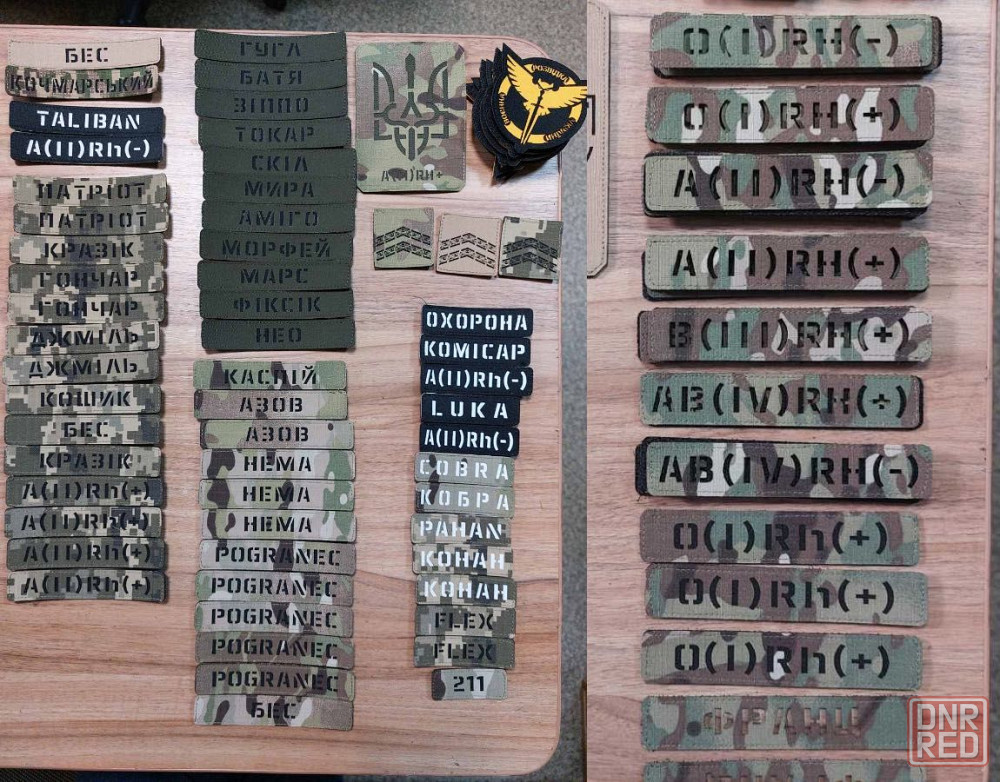 БЕС
КОЧМАРСЬКИЙ
TALIBAN
A(II)Rh(-)
ПАТРІОТ
ПАТРІОТ
КРАЗІК
ГОНЧАР
ГОНЧАР
ДЖМІЛЬ
ДЖМІЛЬ
КОШИК
БЕС
КРАЗІК
A(II)Rh(+)
A(II)Rh(+)
A(II)Rh(+)
A(II)Rh(+)
ГУГЛ
БАТЯ
ЗІППО
ТОКАР
СКІЛ
МИРА
АМІГО
МОРФЕЙ
МАРС
ФІКСІК
НЕО
КАСПІЙ
АЗОВ
АЗОВ
НЕМА
НЕМА
НЕМА
POGRANEC
POGRANEC
POGRANEC
POGRANEC
POGRANEC
БЕС
A(II)RH+
РОЗВІДКА
ОХОРОНА
КОМІСАР
A(II)Rh(-)
LUKA
A(II)Rh(-)
COBRA
КОБРА
PAHAN
КОНАН
КОНАН
FLEX
FLEX
211
O(I)RH(-)
O(I)RH(+)
A(II)RH(-)
A(II)RH(+)
B(III)RH(+)
AB(IV)RH(+)
AB(IV)RH(-)
O(I)Rh(+)
O(I)Rh(+)
O(I)Rh(+)
ФРАНЦ
DNR
RED